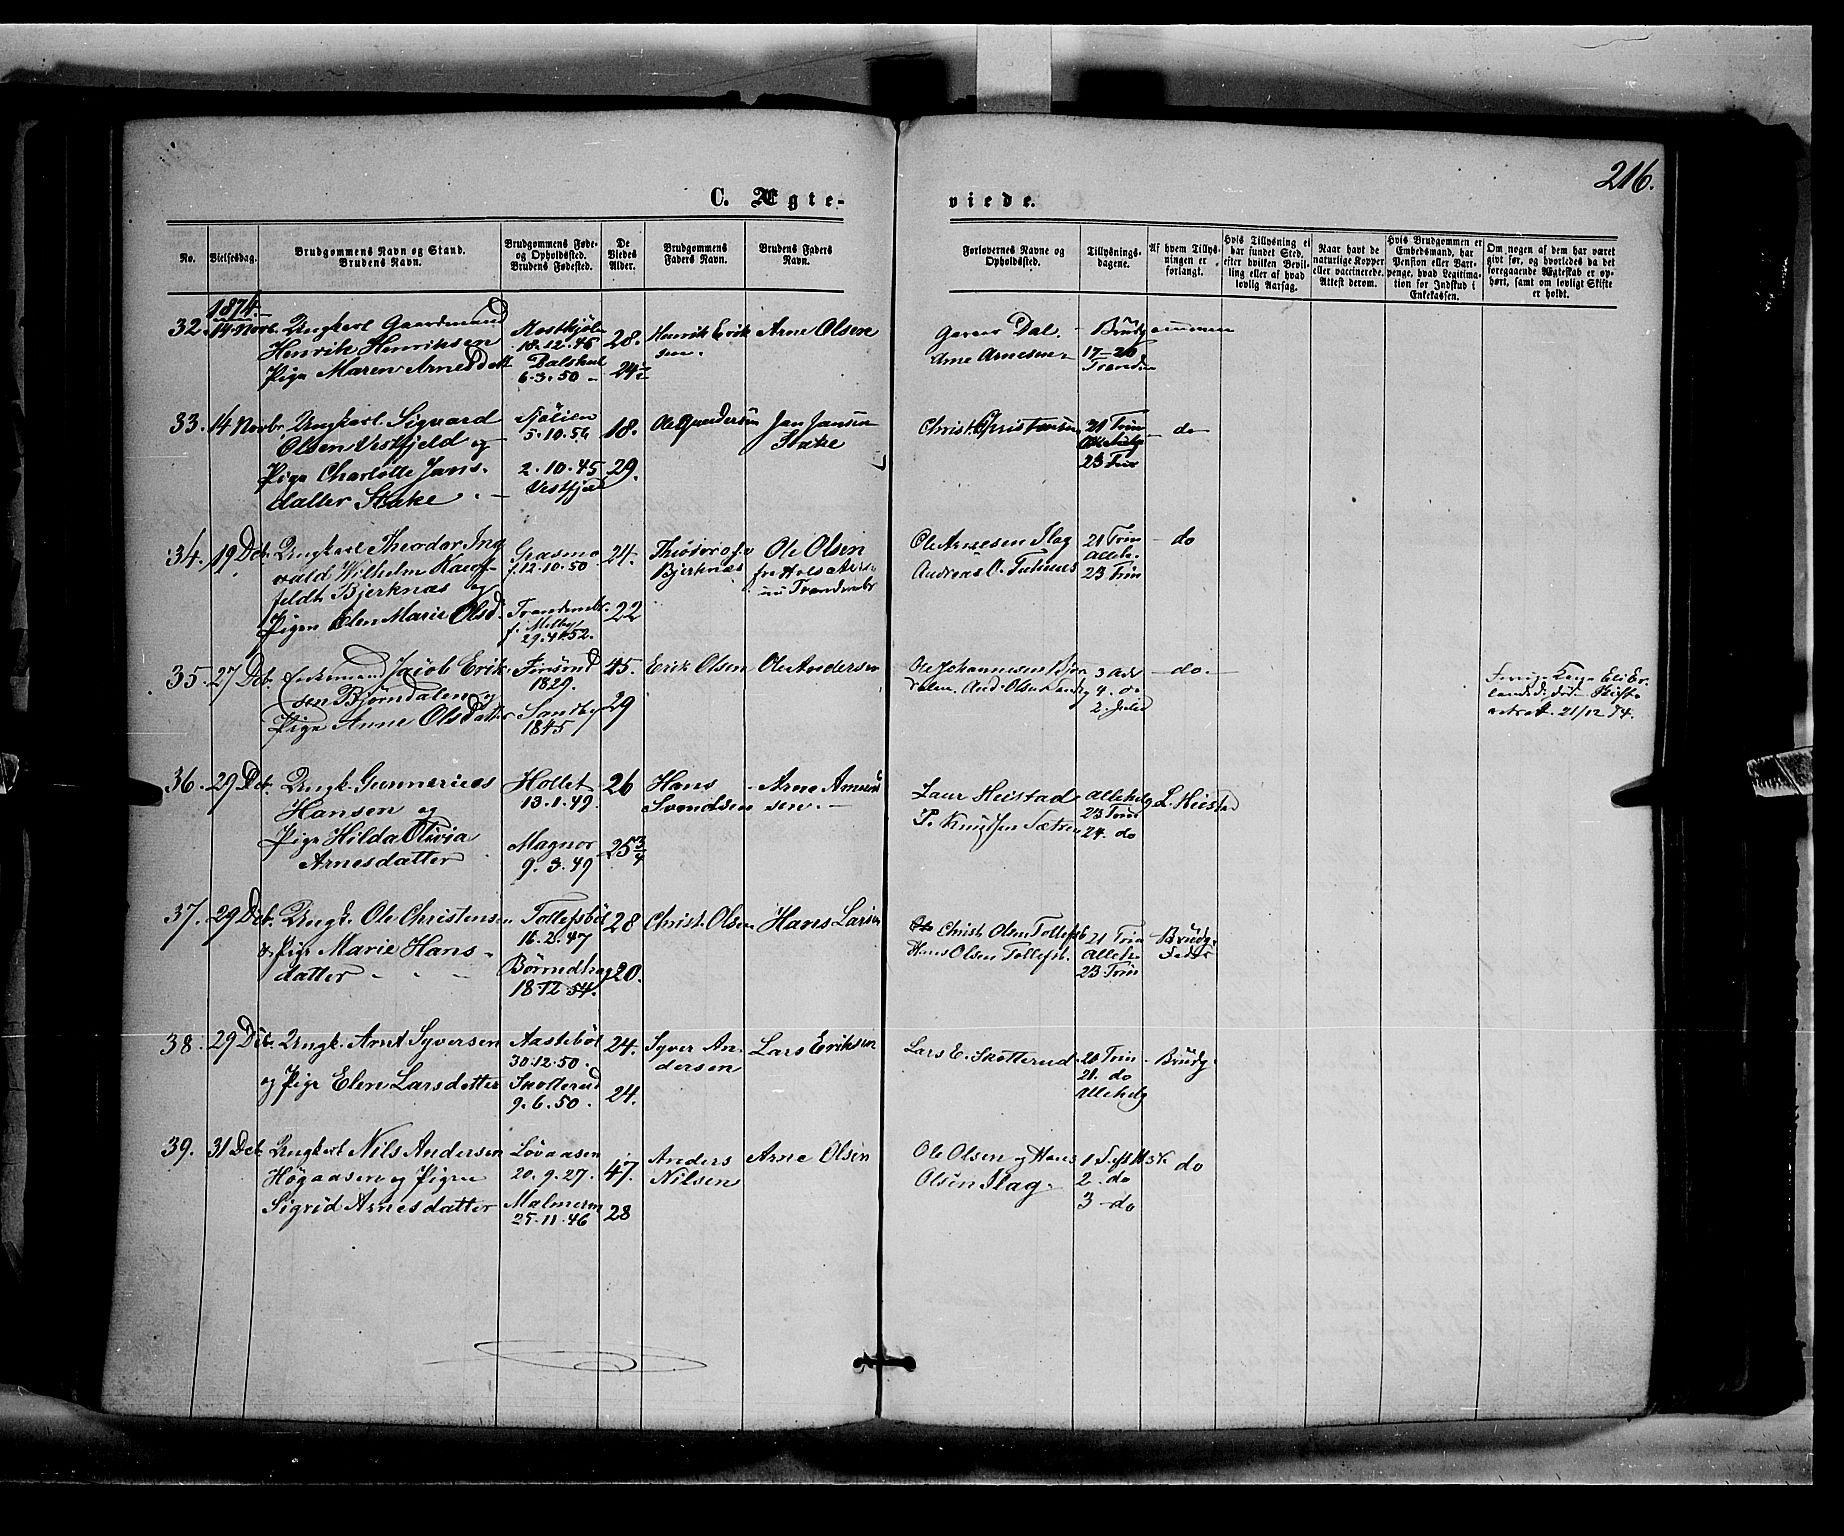 216.
C. Ægte-
viede.
No.
Vielsesdag.
Brudgommens Navn og Stand.
Brudens Navn.
Brudgommens Føde-
og Opholdssted.
Brudens Fødested.
De
Viedes
Alder.
Brudgommens
Faders Navn.
Brudens Faders
Navn.
Forlovernes Navne og
Opholdssted.
Tillysnings-
dagene.
Af hvem Tillys-
ningen er
forlangt.
Hvis Tillysning ei
har fundet Sted,
efter hvilken Bevil-
ling eller af hvad
lovlig Aarsag.
Naar havt de
naturlige Kopper
eller vaccinerede.
Attest derom.
Hvis Brudgommen er
Embedsmand, har
Pension eller Var-
penge, hvad Legitima-
tion for Indskud i
Enkekassen.
Om nogen af dem har været
givt før, og hvorledes da det
foregaaende Ægteskab er op-
hørt, samt om lovligt Skifte
er holdt.
1874.
32. 14 Novbr. Ungkarl Gaardmand
Henrik Henriksen
Pige Maren Arnesdatt
18.12.45
6.3.50
28.
24
Henrik Erik
sen.
Arne Olsen
Dal
Arne Arnesen
Brudgommen
17-20
33. 14 Novbr. Ungkarl Sigvard
Olsen Vestfjeld og
Pige Charlotte Jans-
datter Stake
5.10.56
2.10.45
Vestfjeld
18.
29.
Ole Gundersen
Jan Jansen
Stake
Christ. Christensen
21 Trin
Alleheelg
23 Trin
do
34. 19 Dcb. Ungkarl Theodor Ing
vald Wilhelm
feldt Bjerknæs og
Pigen Elen Marie Olsd.
f. 12.10.50
f. Melby
29.4.52.
24.
22
Bjerknæs
Ole Olsen
Ole Arnesen Slag
Andreas O.
21 Trin
Allehe.
23 Trin
do
35. 27 Dcb. Enkemand Jacob Erik
sen Bjørndalen og
Pige Anne Olsdatter
1829.
Sandby
1845
45.
29
Erik Olsen
Ole Andersen
Ole Johannesen Bjørn
dalen. And. Olsen Sandby
3 Adv
4. do
2. Juled
do.
21/12 74.
36. 29 Dcb. Ungk. Gunnerius
Hansen og
Pige Hilda Olivia
Arnesdatter
Hollet
13.1.49.
Magnor
9.3.49
26
25 3/4
Hans
Svendsen
Arne Amund
sen.
Laur Heistad
P. Knudsen Sætre
Allehelg
23 Trin
24. do
L. Heistad
37. 29 Dcb. Ungk. Ole Christensen
& Pige Marie Hans-
datter
Tollefsbøl
16.2.47
Børrudhag
18.12.54.
28
20.
Christ. Olsen
Hans Larsen
Christ Olsen Tollefsb
Hans Olsen Tollefsb.
21 Trin
Alleh.
23 Trin
Brudg.
Fader
38. 29 Dcb. Ungk. Arnt Syversen
og Pige Elen Larsdatter
Aastebøl
30.12.50.
Skotterud
9.6.50.
24.
24.
Syver An-
dersen
Lars Eriksen
Lars E. Skotterud
20 Trin
21. do
Allehelg
Brudg.
39. 31 Dcb. Ungkarl Nils Andersen
Högaasen og Pigen
Sigrid Arnesdatter
Lövaasen
20.9.27.
Malmerm
25.11.46
47.
28
Anders
Nilsen
Arne Olsen
Ole Olsen og Hans
Olsen Slag.
2. do
3 do
do